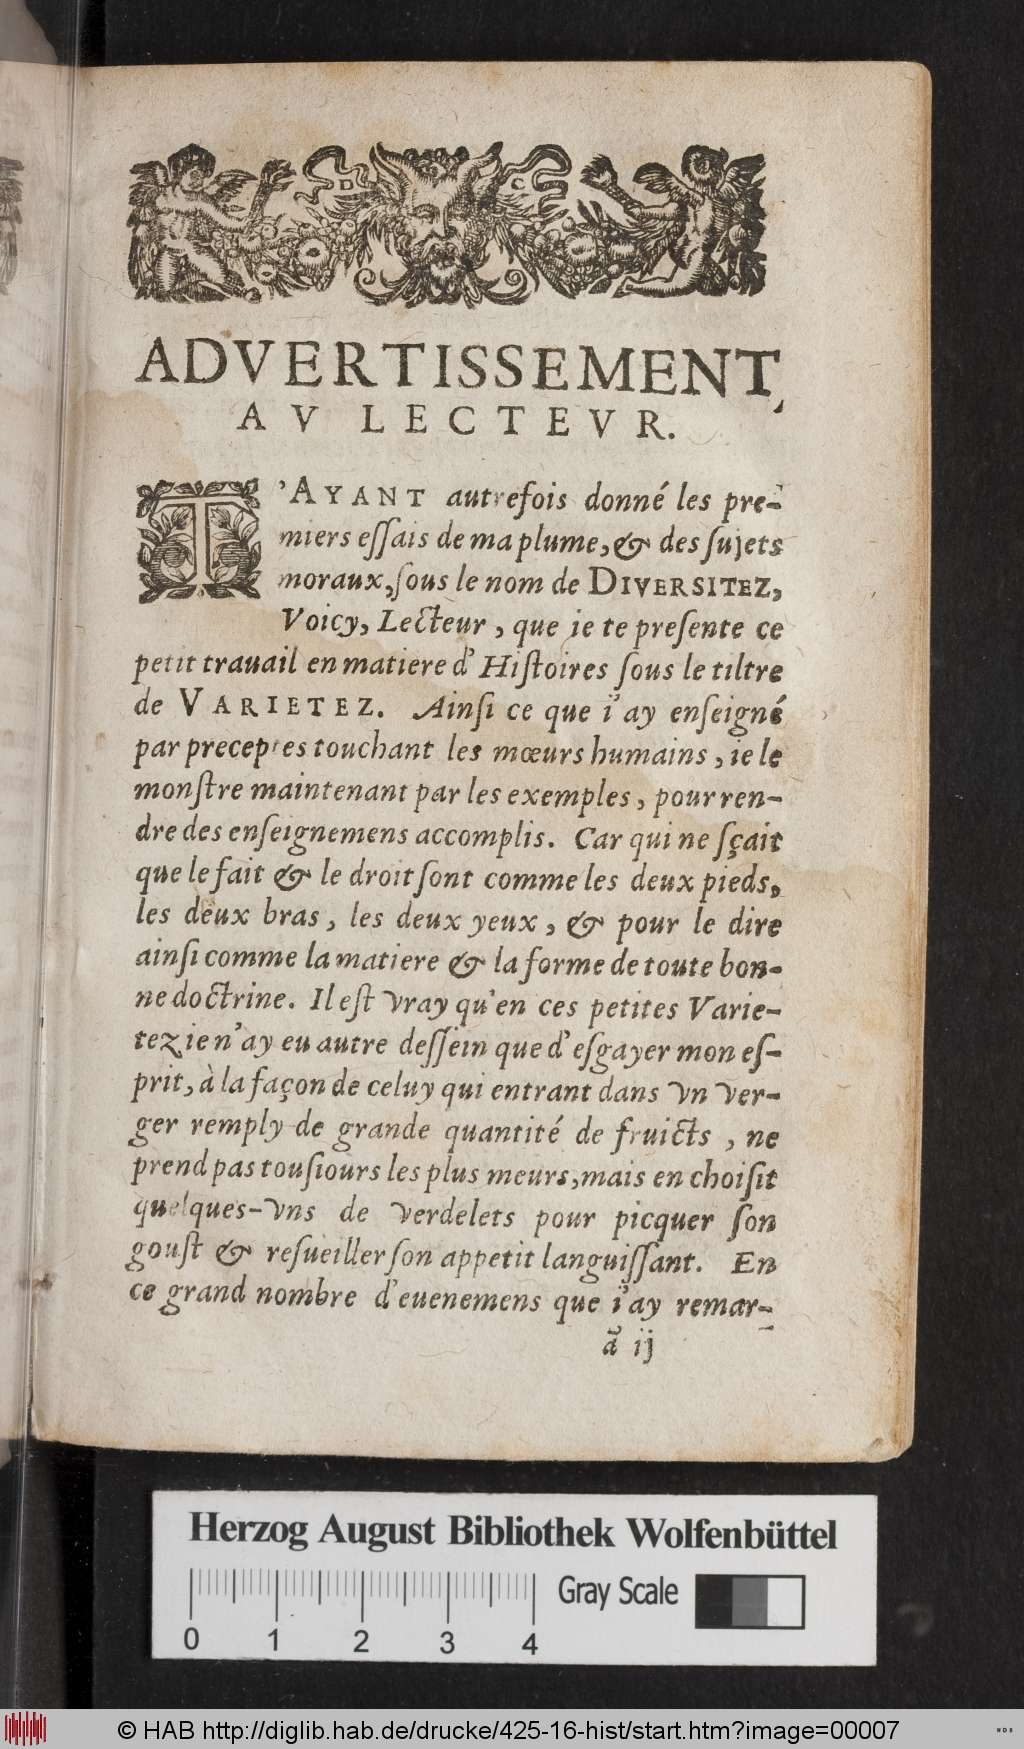 D C
ADVERTISSEMENT,
AV LECTEVR.
T'AYANT autrefois donné les pre-
miers eſſais de ma plume, & des ſujets
moraux, ſous le nom de DIVERSITEZ,
Voicy, Lecteur, que ie te preſente ce
petit trauail en matiere d'Hiſtoires ſous le tiltre
de VARIETEZ. Ainſi ce que i'ay enſeigné
par preceptes touchant les mœurs humains, ie le
monſtre maintenant par les exemples, pour ren-
dre des enſeignemens accomplis. Car qui ne ſçait
que le fait & le droit ſont comme les deux pieds,
les deux bras, les deux yeux, & pour le dire
ainſi comme la matiere & la forme de toute bon-
ne doctrine. Il eſt vray qu'en ces petites Varie-
tez ie n'ay eu autre deſſein que d'eſgayer mon eſ-
prit, à la façon de celuy qui entrant dans vn ver-
ger remply de grande quantité de fruicts, ne
prend pas touſiours les plus meurs, mais en choiſit
quelques-vns de verdelets pour picquer ſon
gouſt & reſueiller ſon appetit languiſſant. En
ce grand nombre d'euenemens que i'ay remar-
ã ij
Herzog August Bibliothek Wolfenbüttel
Gray Scale
0 1 2 3 4
© HAB http://diglib.hab.de/drucke/425-16-hist/start.htm?image=00007
WDB